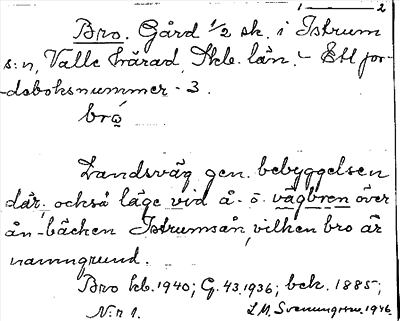 1 — 2
Bro. Gård 1/2 sk. i Istrum
s:n, Valle härad, Skb. län. - Ett jor-
-deboksnummer - 3.
bro̲
Landsväg gen. bebyggelsen
där; också läge vid å- o. vägbron över
ån-bäcken Istrumsån, vilken bro är
namngrund.
Bro kb. 1940; G. 43. 1936; bek. 1885;
N:r 1. L.M. Svenungsson. 1946.